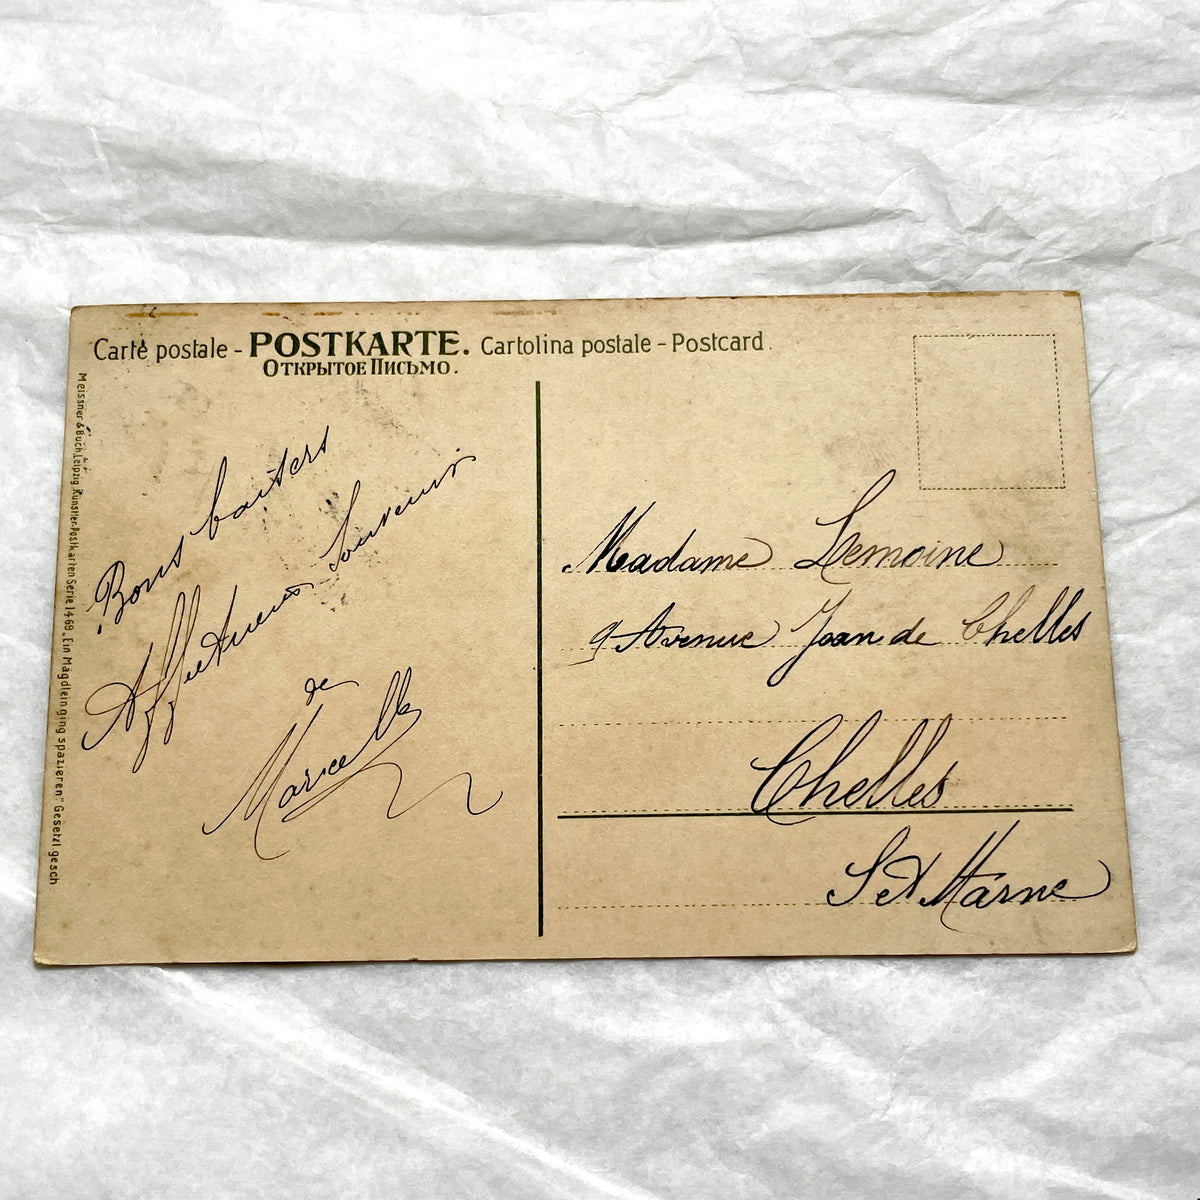 Carte postale - POSTKARTE. Cartolina postale - Postcard.
ОТКРЫТОЕ ПИСЬМО.
Meissner & Buch, Leipzig. Künstler-Postkarten Serie 1469 „Ein Mägdlein ging spazieren" Gesetzl. gesch.
Bons baisers
Affectueux Souvenir
de
Marcelle
Madame Lemoine
9 Avenue Jean de Chelles
Chelles
S et Marne